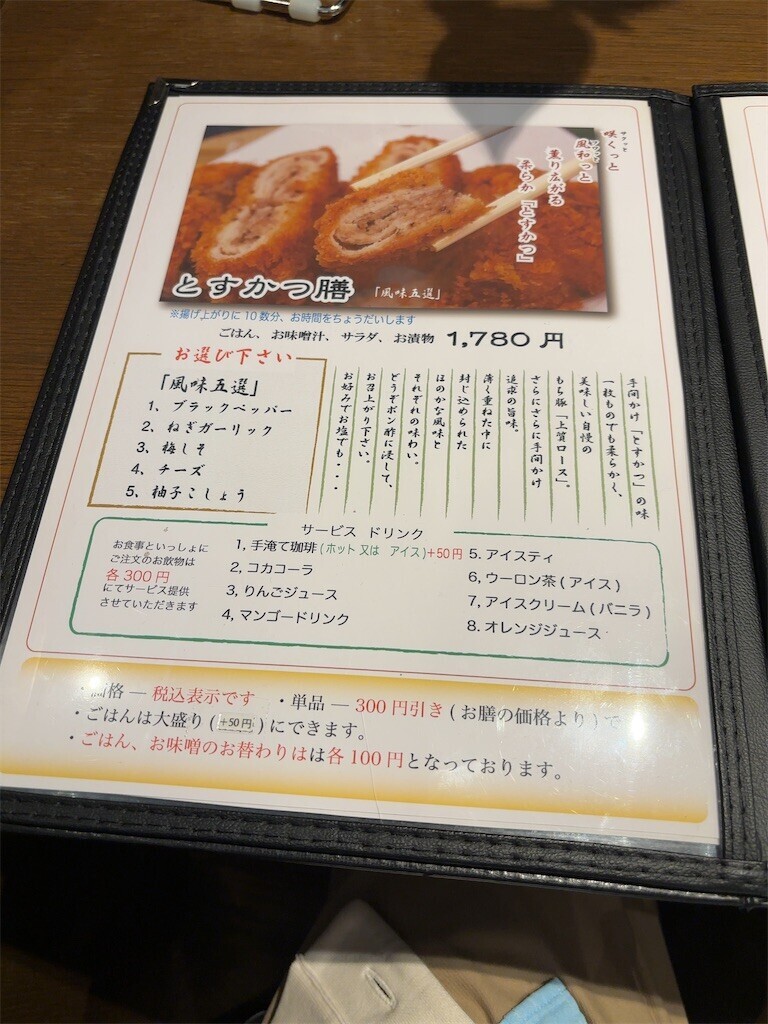 咲くっと
サクッと
風和っと
フワッと
薫り広がる
柔らか「とすかつ」
とすかつ膳
「風味五選」
※揚げ上がりに10数分、お時間をちょうだいします
ごはん、お味噌汁、サラダ、お漬物 1,780 円
お選び下さい
「風味五選」
1、ブラックペッパー
2、ねぎガーリック
3、梅しそ
4、チーズ
5、柚子こしょう
手間かけ「とすかつ」の味
一枚ものでも柔らかく、
美味しい自慢の
もち豚「上質ロース」。
さらにさらに手間かけ
追求の旨味。
薄く重ねた中に
封じ込められた
ほのかな風味と
それぞれの味わい。
どうぞポン酢に浸して、
お召上がり下さい。
お好みでお塩でも・・・
サービス ドリンク
お食事といっしょに
ご注文のお飲物は
各300円
にてサービス提供
させていただきます
1, 手淹て珈琲(ホット 又は アイス)+50円
2, コカコーラ
3, りんごジュース
4, マンゴードリンク
5. アイスティ
6, ウーロン茶(アイス)
7, アイスクリーム(バニラ)
8. オレンジジュース
・価格 ― 税込表示です ・単品 ― 300円引き(お膳の価格より)で
・ごはんは大盛り(+50円)にできます。
・ごはん、お味噌のお替わりはは各100円となっております。